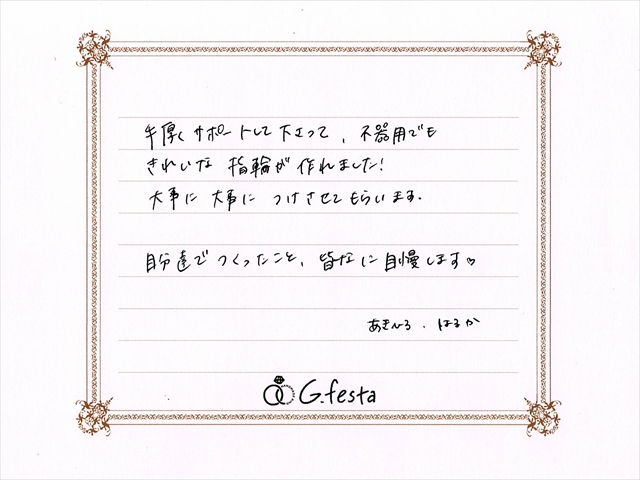 手厚くサポートして下さって、不器用でも
きれいな指輪が作れました!
大事に大事につけさせてもらいます.
自分達でつくったこと、皆なに自慢します♡
あきひろ.はるか
G.festa